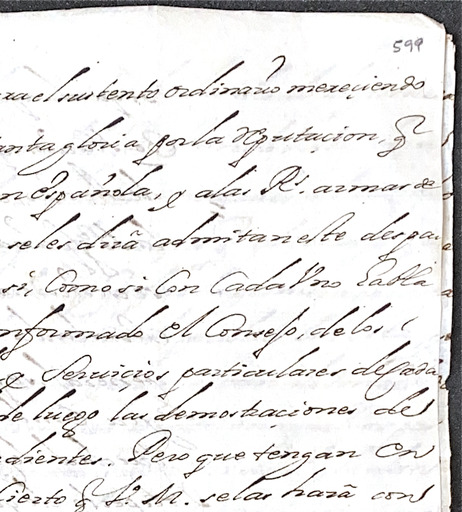 599
ra el sustento ordinario mereçiendo
anta gloria por la reputaçion, q̃
n española, y a las Rs. armas de
se les dirá admitan este despa
si, Como si Con Cada Vno habla
nformado el Consejo, de los
Seruiçios particulares de Cada
de luego las demostraçiones del
edientes. Pero que tengan en
Cierto q̃ S. M. se las hará con